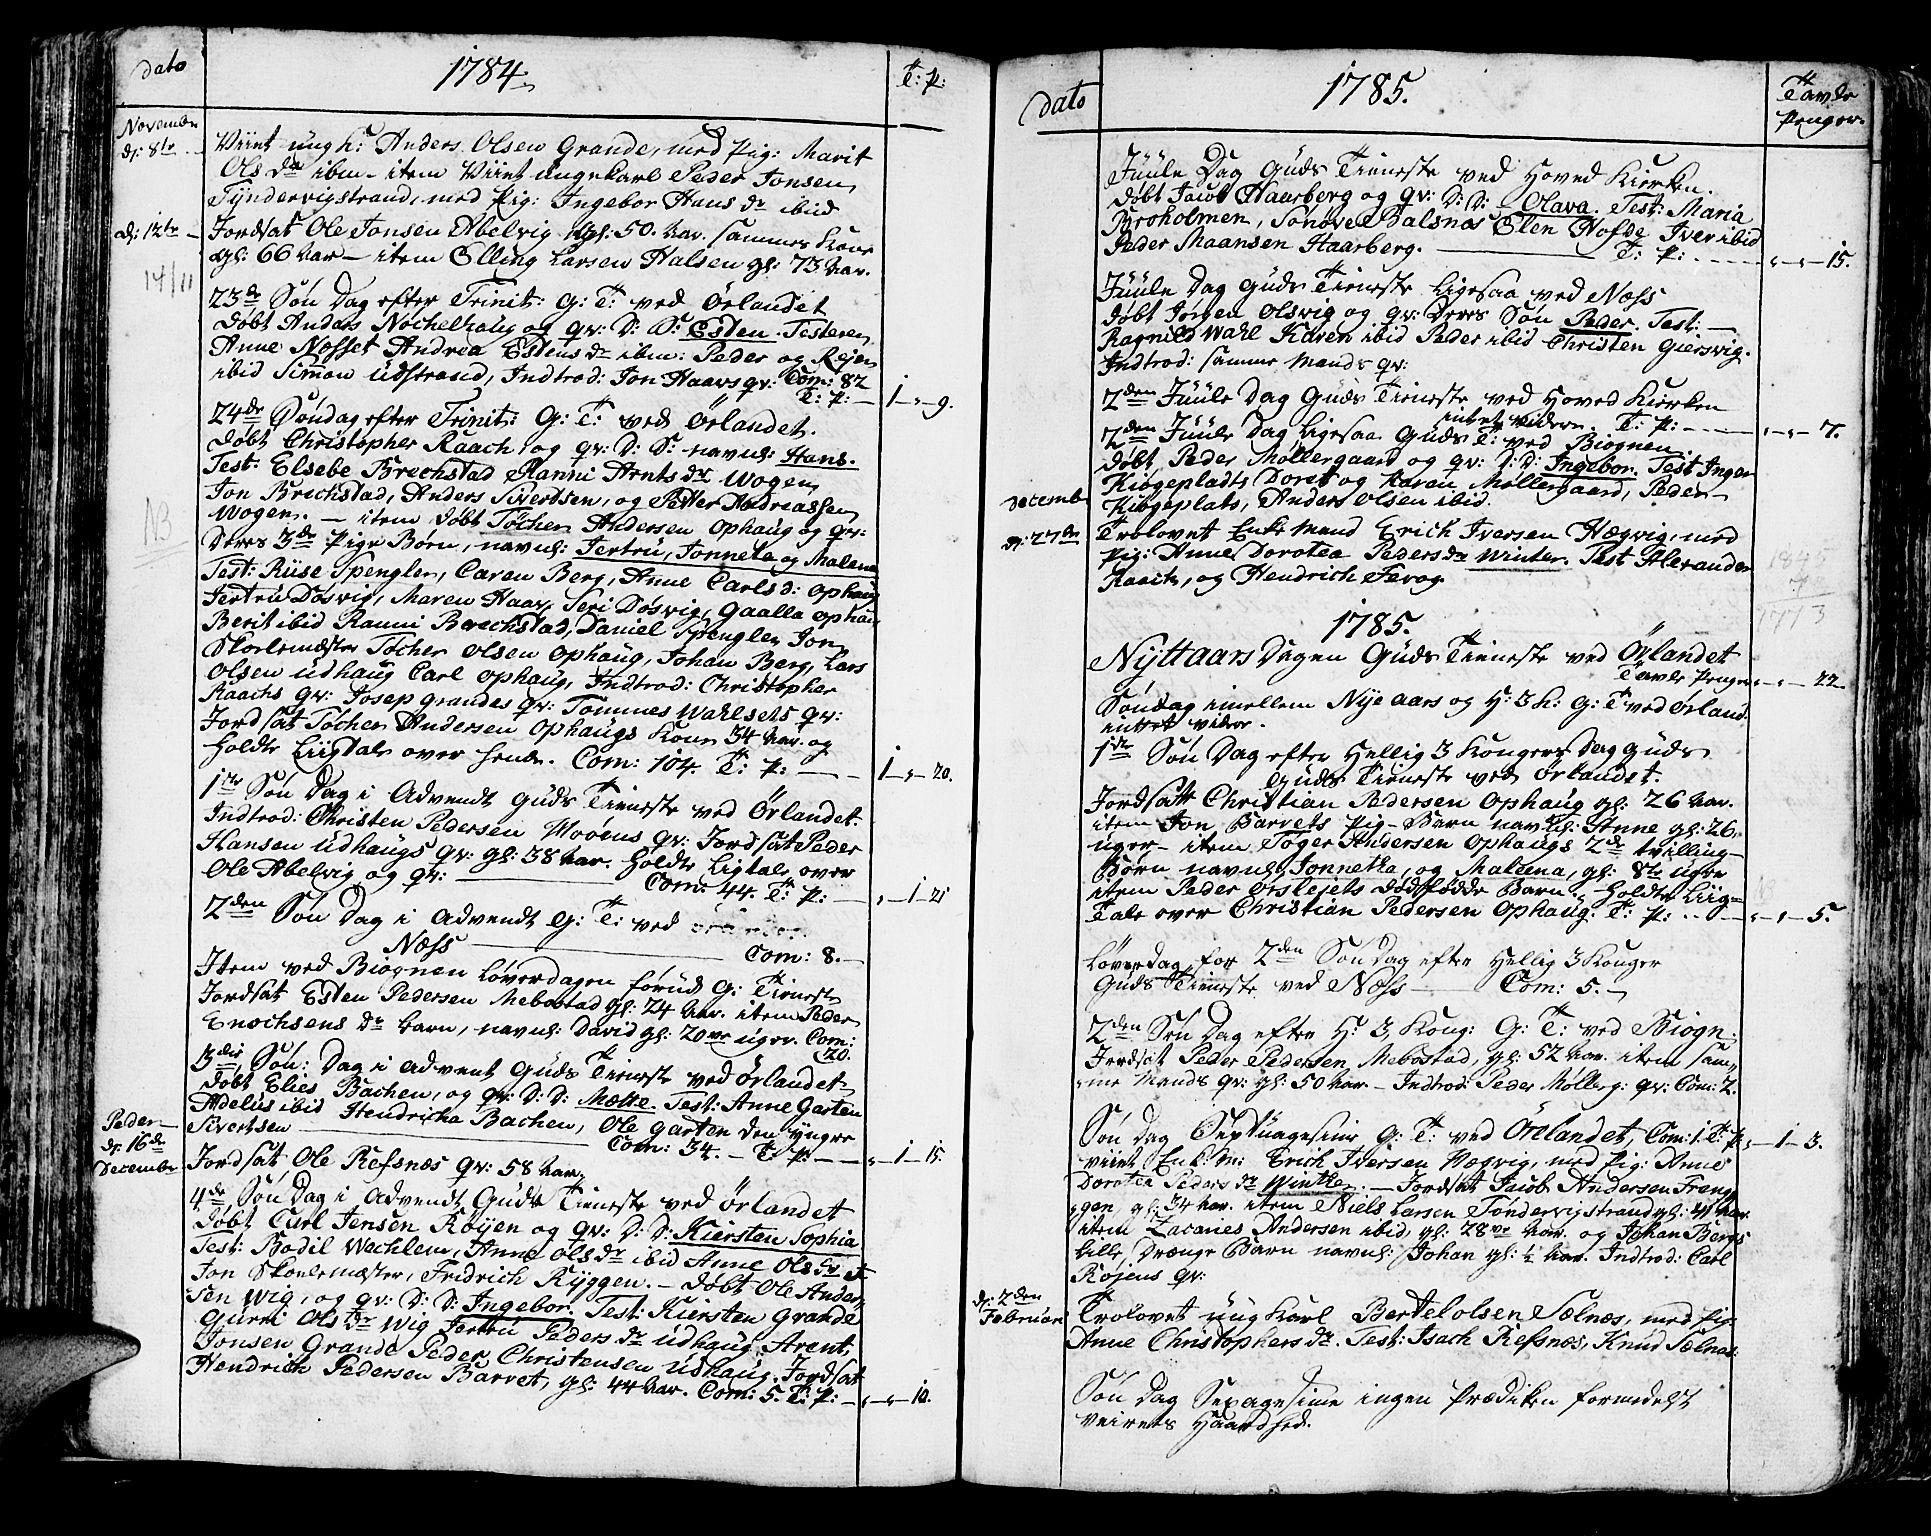 dato
1784
T: p:
November
d: 8te
Viiet ungk: Anders Olsen Grande, med Pig: Marit
Ols dr ibm – item Viiet ungekarl Peder Jonsen
Tÿndervigstrand, med Pig: Ingebor Hans dr ibid
d: 12te
Jordsat Ole Jonsen Abelvig gl: 50 aar. sammes Kone
gl: 66 aar – item Elling Larsen Halsen gl: 73 aar.
14/11
23de Søn Dag efter Trinit: G: T: ved Ørlandet
døbt Anders Nochelhaug og qv: D: S: Esten. Testeren
Anne Næsset Andrea Estens dr ibm: Peder og Rejer
ibid Simmon udstrand, Indtrod: Jon Haars qv: Com: 82
T: p: — 1 – „ – 9.
24de Søndag efter Trinit: G: T: ved Ørlandet.
døbt Christopher Raach, og qv: D: S: navnl: Hans.
Test: Elsebe Brechstad Ranni Arnts dr Wogen,
Jon Brechstad, Anders Sivertsen, og Petter Andreassen
Wogen. – item døbt Töcher Andersen Ophaug og qv:
NB
Deres 3de Pige Børn, navnl: Jertru, Jonneta og Malena
Test: Riise Spengler, Caren Berg, Anne Carlsd: Ophaug
Jertru Døsvig, Maren Haar, Seri Døsvig, Gaalla Ophaug
Berit ibid Ranni Brechstad, Daniel Spengler Jon
Skolemester Töcher Olsen Ophaug, Johan Berg, Lars
Olsen udhaug Carl Ophaug, Indtrod: Christopher
Raachs qv: Josep Grandes qv: Tommes Wahlsets qv:
Jordsat Töcher Andersen Ophaugs Kone 34 aar. og
holdte Liigtale over hende. Com: 104. T: p: — 1 – „ – 20.
1ste Søn Dag i Advendt Guds Tieneste ved Ørlandet.
Indtrod: Christen Pedersen Moøens qv: Jordsat Peder
Hansen udhaugs qv: gl: 38 aar. holdte Ligtale over
Ole Abelvig og qv: — Com: 44. T: p: — „ – 1 – 21
2den Søn Dag i Advendt G: T: ved
Næss — Com: 8. —
Item ved Biognen Løverdagen forud G: Tieneste
Jordsat Esten Pedersen Mebostad gl: 24 aar. item Peder
Enochsens dr barn, navnl: David gl: 20ve uger. Com:
20.
3die Søn: Dag i Advent Guds Tieneste ved Ørlandet
døbt Elies Bachen, og qv: D: D: Mætte. Test: Anne Garten
Adelus ibid Hendricha Bachen, Ole Garten den yngre
Peder
Sivertsen — Com: 34. – T: p: — „ – 1 – 15.
d: 16de
December
Jordsat Ole Refsnæs qv: 58 aar
4de Søn Dag i Advendt Guds Tieneste ved Ørlandet
Døbt Carl Jensen Røÿen og qv: D: D: Kiersten Sophia
Test: Bodil Wechlem, Anne Ols dr ibid Anne Ols dr
Jon Skolemæster, Fridrich Ryggen. – Døbt Ole Ander-
sen Wig, og qv: D: D: Ingebor. Test: Kiersten Grande
Gurri Ols dr Wig Jertru Peders dr udhaug Arent
Jonsen Grande Peder Christensen udhaug. Jordsat
Hendrich Pedersen Barvet, gl: 44 aar. Com: 5. T: p: – „ – „ – 10.
dato
1785.
Tavle
Penger.
Juule Dag Guds Tieneste ved Hoved Kierken.
døbt Jacob Haarberg og qv: D: D: Olava. Test: Maria
Broholmen, Tønøve Balsnæs Elen Hofde Iver ibid
Peder Maansen Haarberg. — T: p: — „ – „ – 15.
Juule Dag Guds Tieneste Ligesaa ved Næss
døbt Jørgen Olsvig og qv: Deres Søn Peder. Test: —
Ragnild Wahl Karen ibid Peder ibid Christen Giersvig.
Indtrod: samme Mands qv:
2den Juule Dag Guds Tieneste ved Hoved Kierken
intet videre. T: p: — „ – „ – 7.
2den Juule Dag Ligesaa Guds T: ved Biognen
døbt Peder Møllergaard og qv: D: D: Ingebor. Test Inger
Kiøgeplads Doret og Karen Møllergaard, Peder
December
Kiøgeplats, Anders Olsen ibid.
d: 27de
Trolovet Enke Mand Erich Iversen Hægvig, med
Pig: Anne Dorotea Peders dr Winter. Test Alexander
Raach, og Hendrich Fevog
1845
72
1773
1785.
Nÿttaars Dagen Guds Tieneste ved Ørlandet
Tavle Penger „ – „ – 22
Søndag imellem Nye aars og H: 3 K: G: T ved Ørland.
intet videre.
1ste Søn Dag efter Hellig 3 Kongers Dag Guds
Guds Tieneste ved Ørlandet.
Jordsatt Christian Pedersen Ophaug gl: 26 aar.
item Jon Barvets Pig-Barn navnl: Anne gl: 26
uger – item Töger Andersen Ophaugs 2de tvilling
Børn navnl: Jonnetha, og Maleena, gl: 8te uger
NB
item Peder Ørslejets dødfødde Barn. – holdte Liig-
Tale over Christian Pedersen Ophaug. T: p: — „ – „ – 5.
Løverdag for 2den Søndag efter Hellig 3 Konger
Guds Tieneste ved Næss — Com: 5. –
2den Søn Dag efter H: 3 Kong: G: T: ved Biogn:
Jordsat Peder Pedersen Mebostad, gl: 52 aar. item sam-
me Mands qv: gl: 50 aar – Indtrod: Peder Mølberg: qv: Com: 2.
Søn Dag Septuagesime G: T: ved Ørlandet, Com: 1. T: p: „ – 1 – 3.
viiet Enk: M: Erich Iversen Hægvig, med Pig: Anne
Dorotea Peders dr Winther. – Jordsat Jacob Andersen Freng-
gen, gl: 34 aar. item Niels Larsen Tøndervigstrand gl: 41 aar
item Zacaries Andersen ibid, gl: 28ve aar. og Johan Bergs
Lille Drænge Barn navnl: Johan gl: ½ aar. Indtrod: Carl
Røjens qv:
d: 2den
Februari
Trolovet ung Karl Bertel Olsen Sælnæs, med Pig:
Anne Christophers dr. Test: Isach Refsnæs, Knud Sælnæs.
Søn Dag Sexagesime ingen Prædiken formedelst
veirets Haardhed.